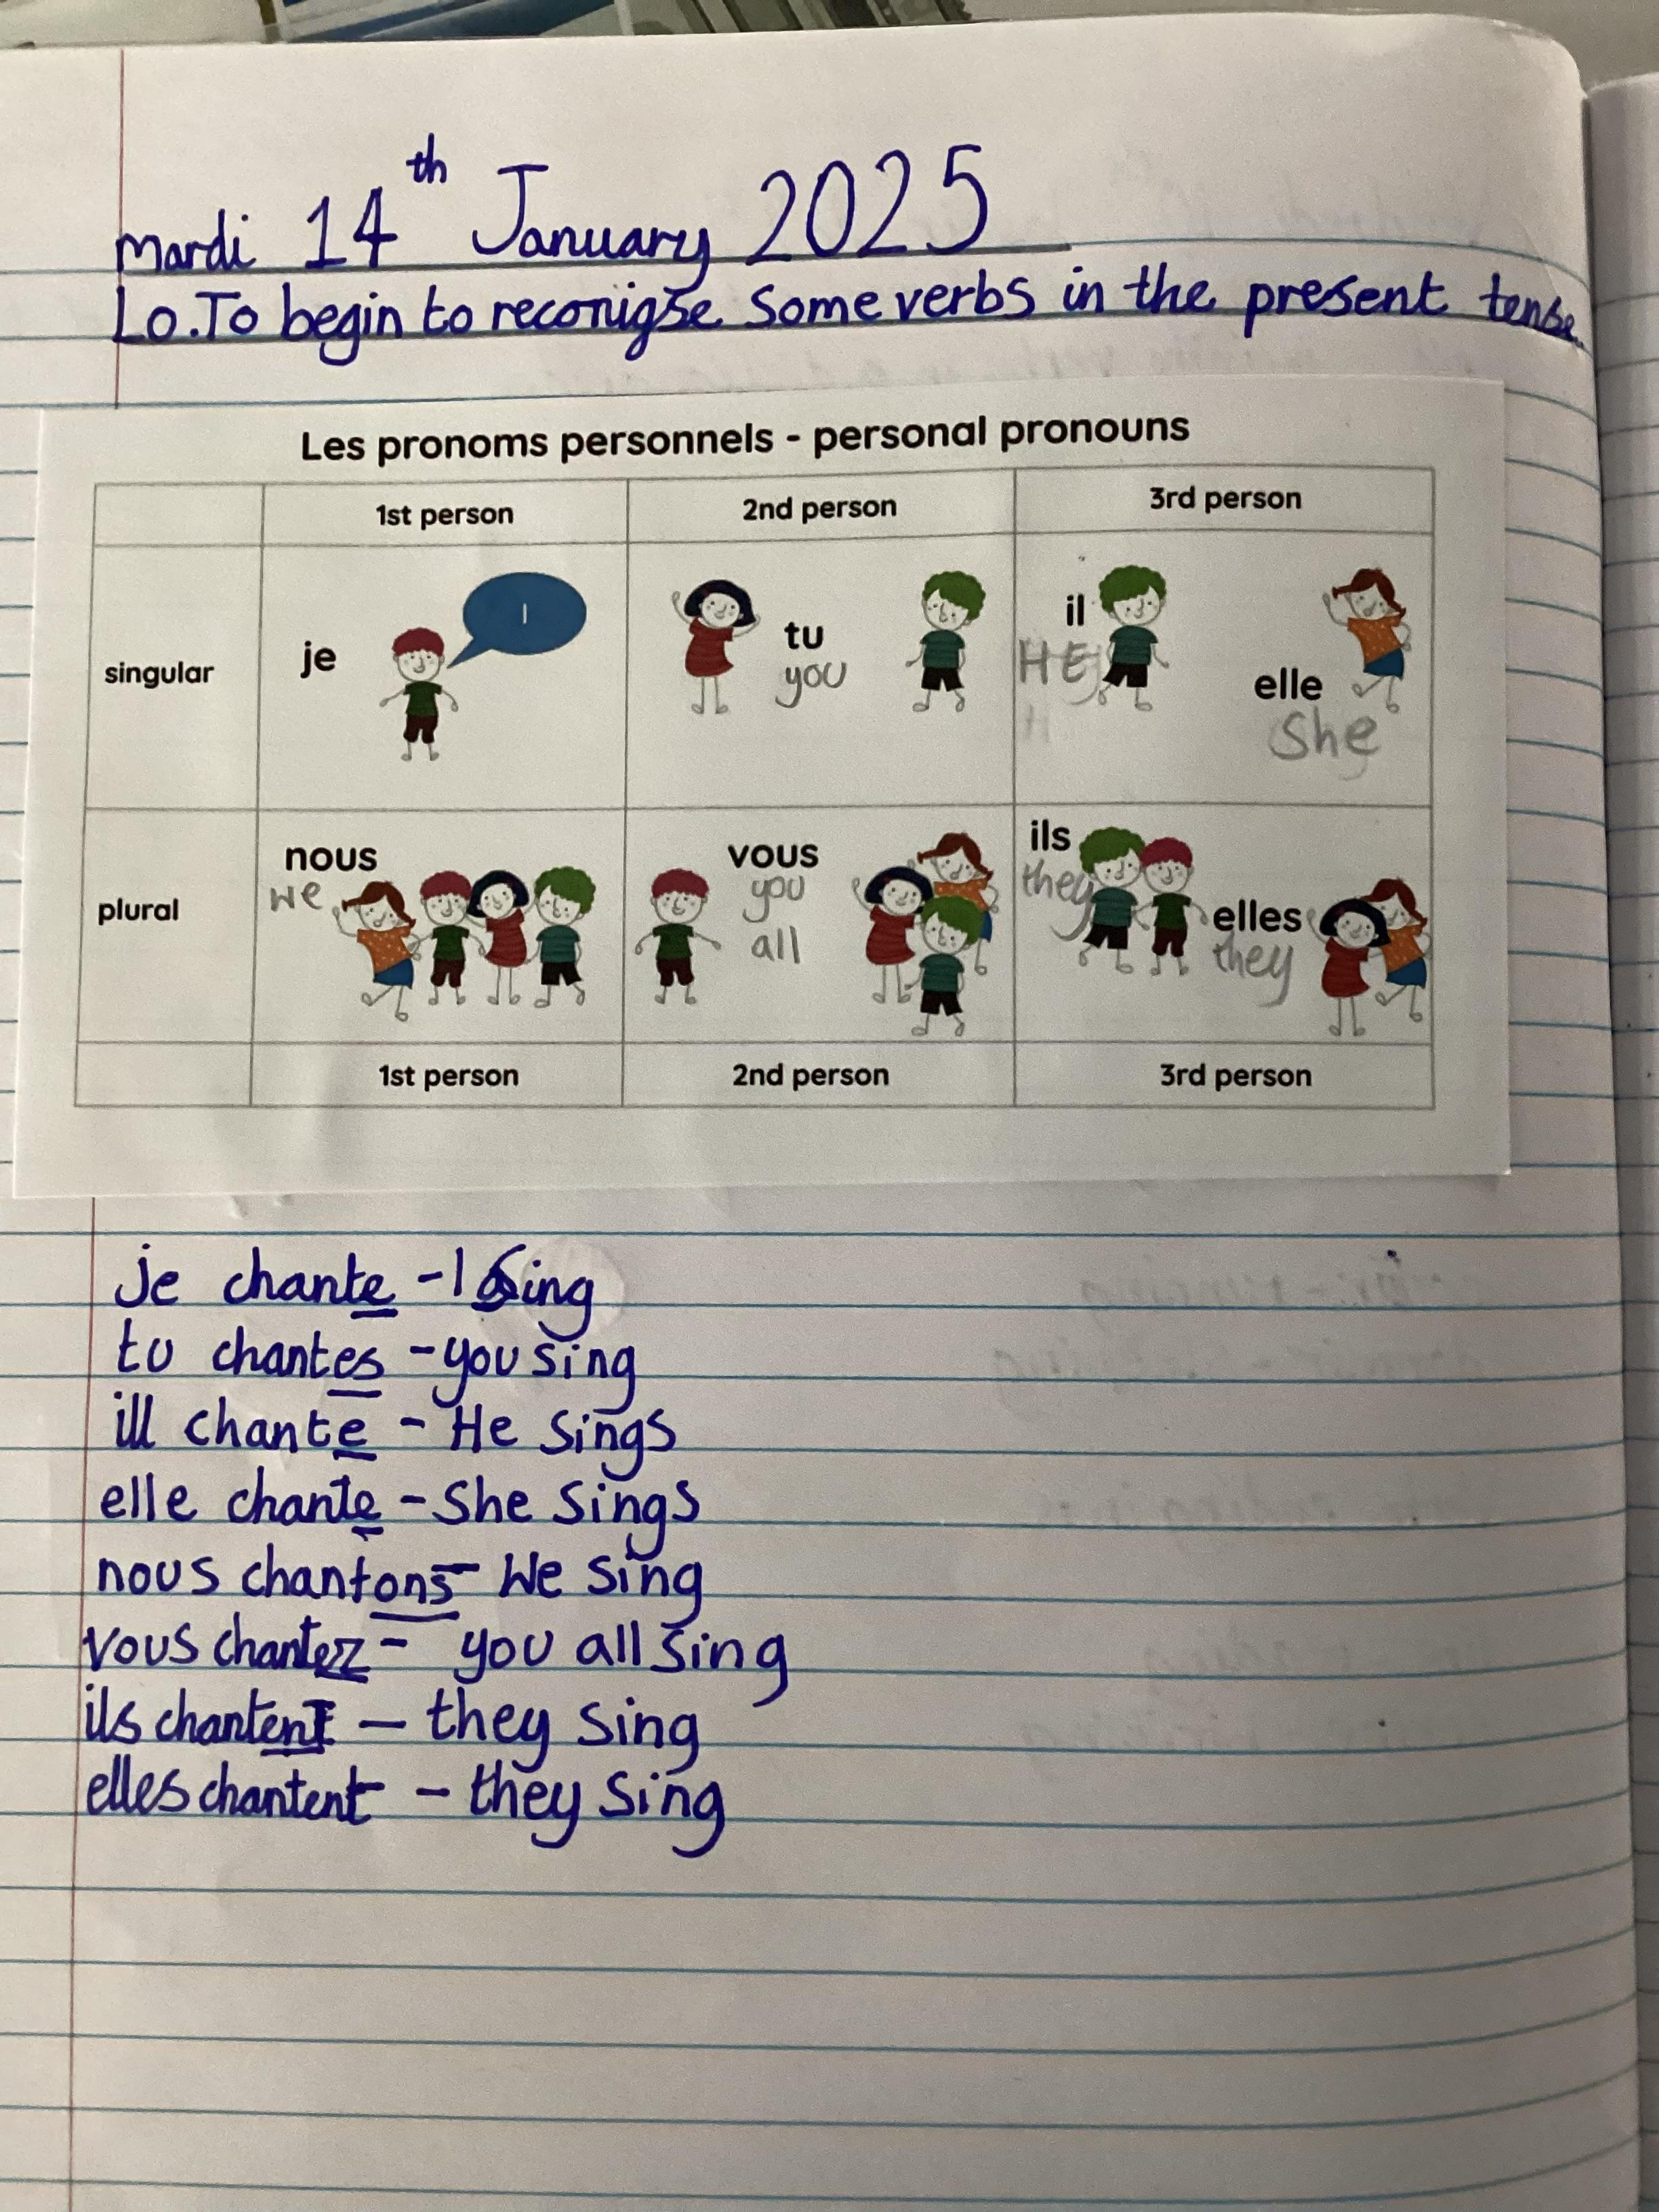 mardi 14th January 2025
Lo. To begin to reconigse some verbs in the present tense.
Les pronoms personnels - personal pronouns
1st person 2nd person 3rd person
singular
je
I
tu
you
il
HE
elle
She
plural
nous
we
vous
you
all
ils
they
elles
they
1st person 2nd person 3rd person
je chante - I Sing
tu chantes - you sing
ill chante - He sings
elle chante - She sings
nous chantons - We sing
vous chantez - you all sing
ils chantent - they sing
elles chantent - they sing